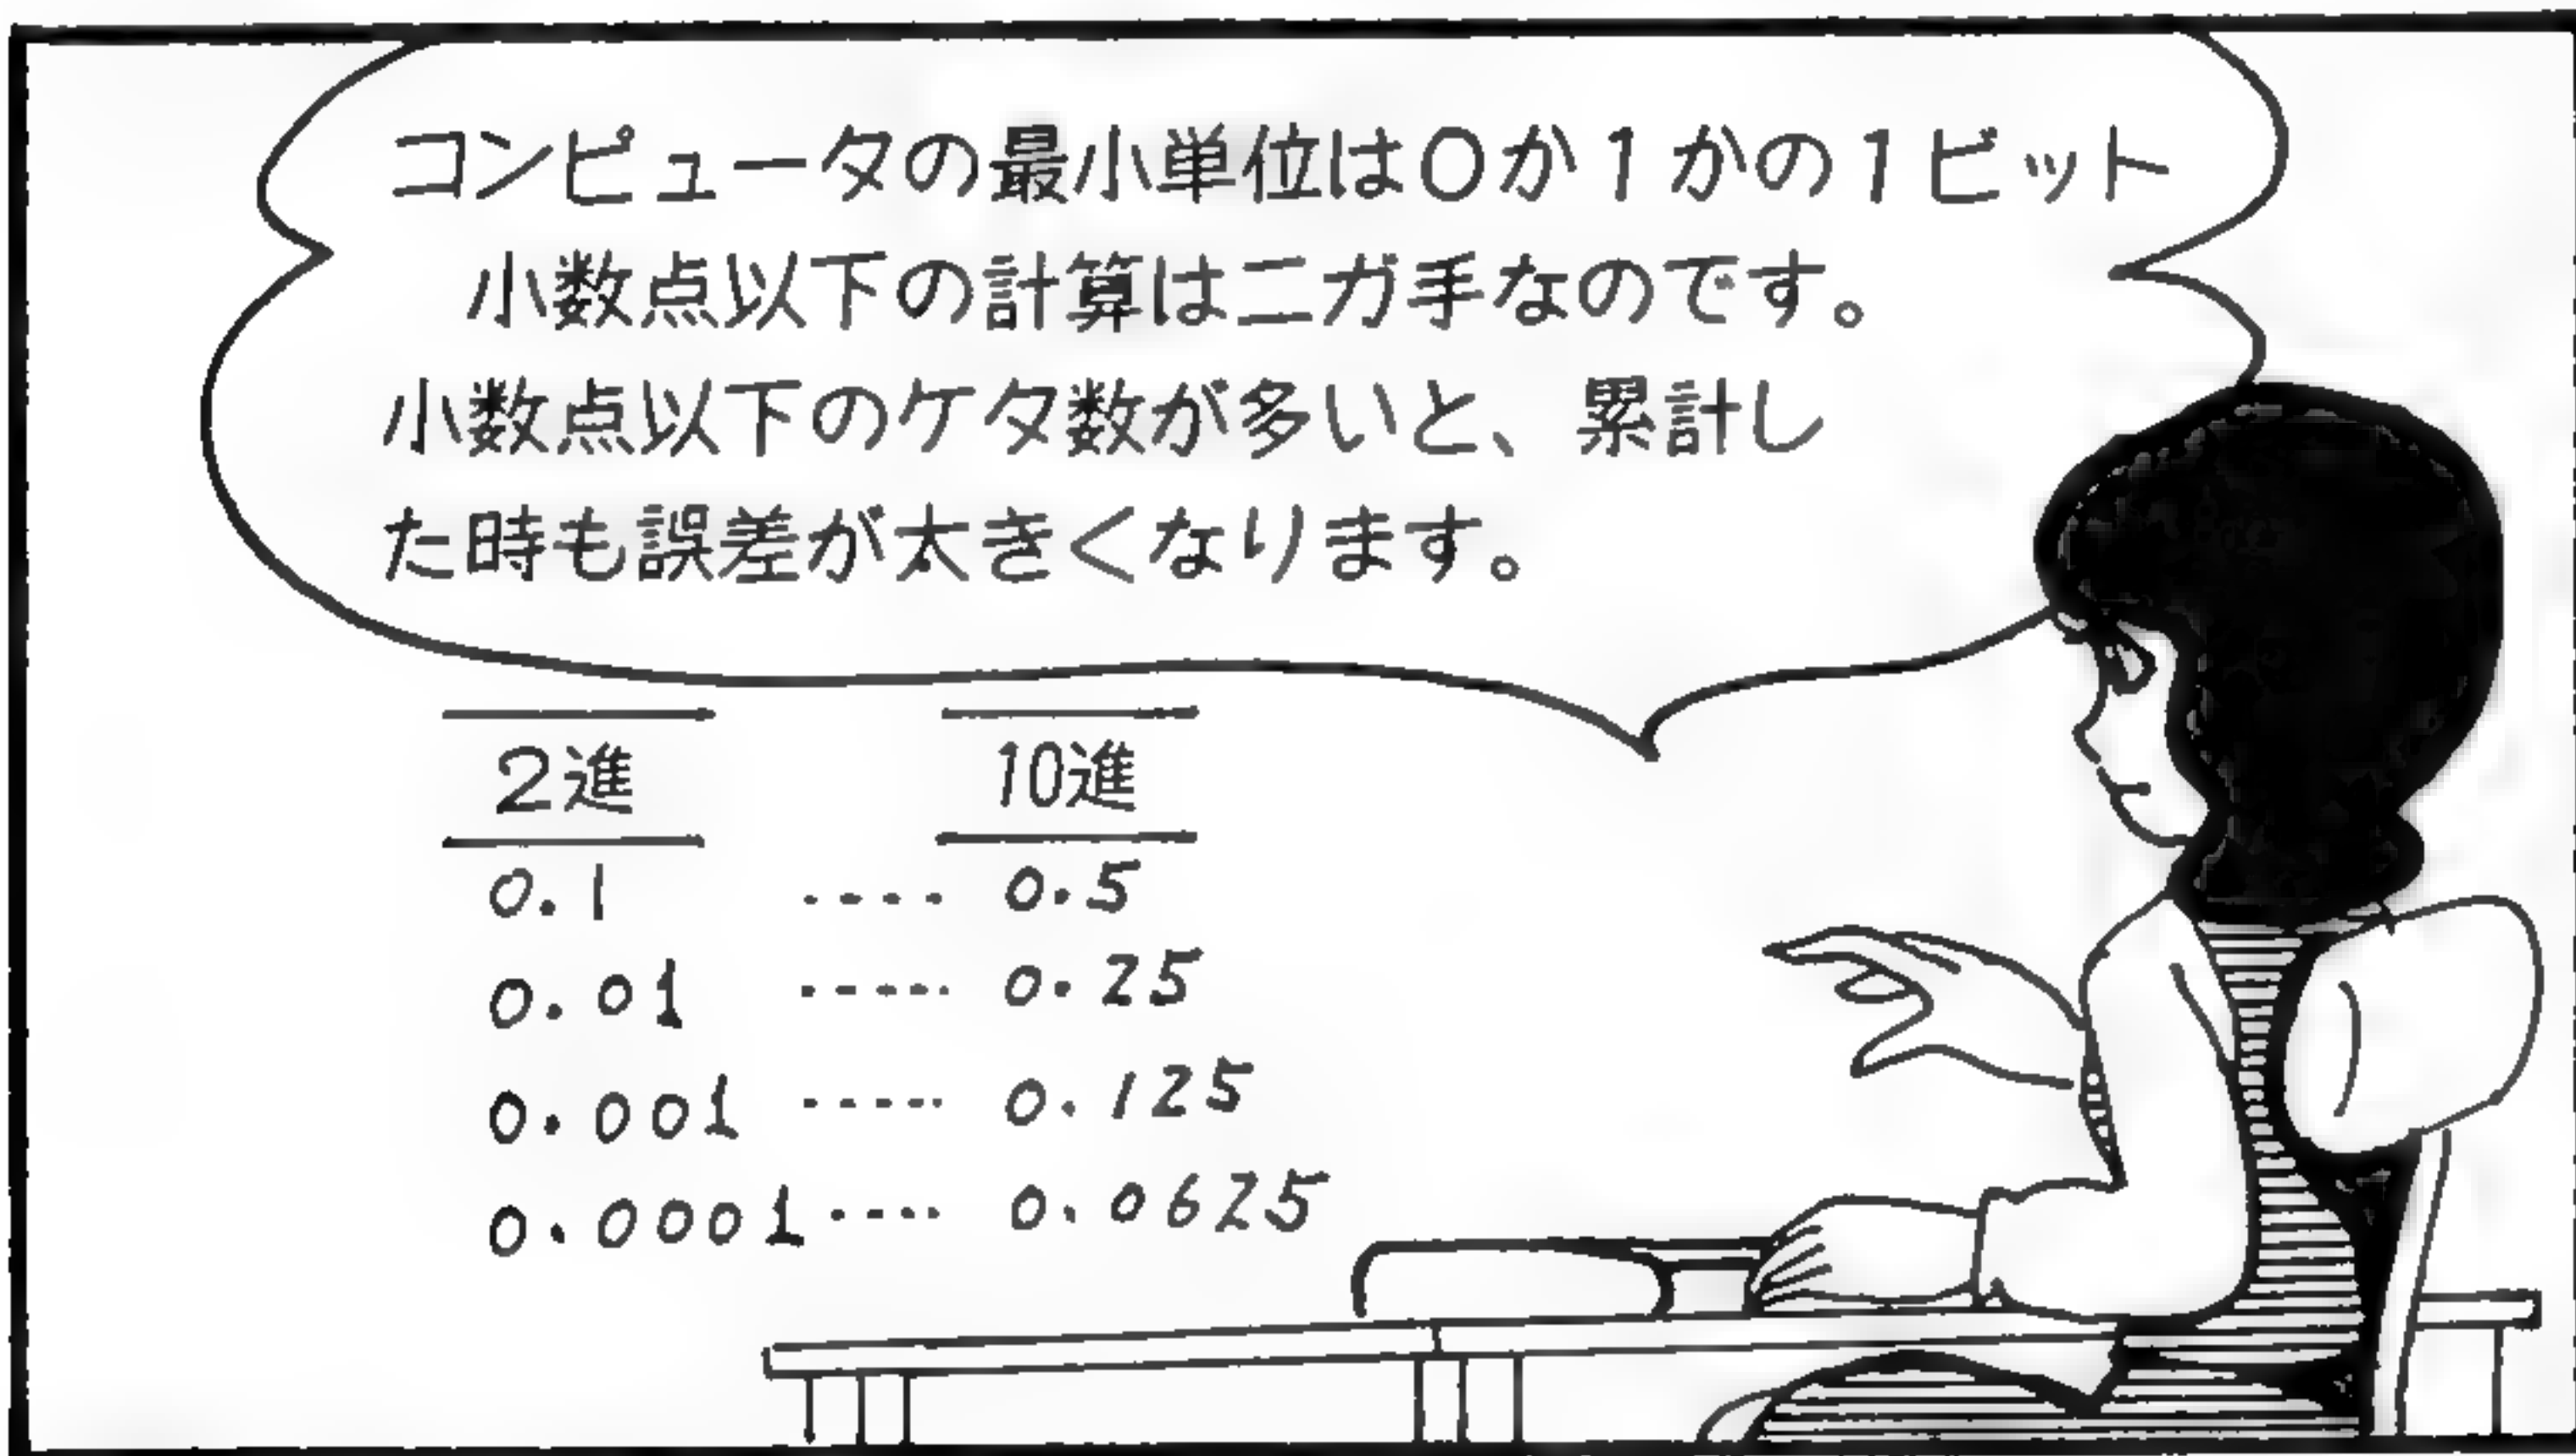 コンピュータの最小単位は0か1かの1ビット
小数点以下の計算はニガ手なのです。
小数点以下のケタ数が多いと、累計し
た時も誤差が大きくなります。
2進 10進
0.1 ‥‥ 0.5
0.01 ‥‥ 0.25
0.001 ‥‥ 0.125
0.0001 ‥‥ 0.0625